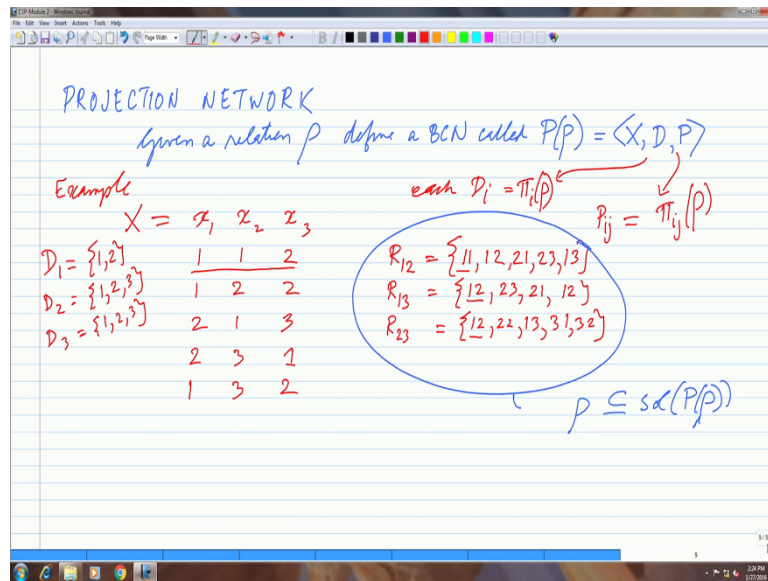 CSP-Module 2 - Windows Journal
File Edit View Insert Actions Tools Help
Page Width
B I
PROJECTION NETWORK
Given a relation ρ define a BCN called P(ρ) = <X, D, P>
Example
each Di = πi(ρ)
Pij = πij(ρ)
X = x1 x2 x3
D1 = {1,2}
D2 = {1,2,3}
D3 = {1,2,3}
1 1 2
1 2 2
2 1 3
2 3 1
1 3 2
R12 = {11, 12, 21, 23, 13}
R13 = {12, 23, 21, 12}
R23 = {12, 22, 13, 31, 32}
ρ ⊆ sol(P(ρ))
9/9
9
2:24 PM
1/27/2016